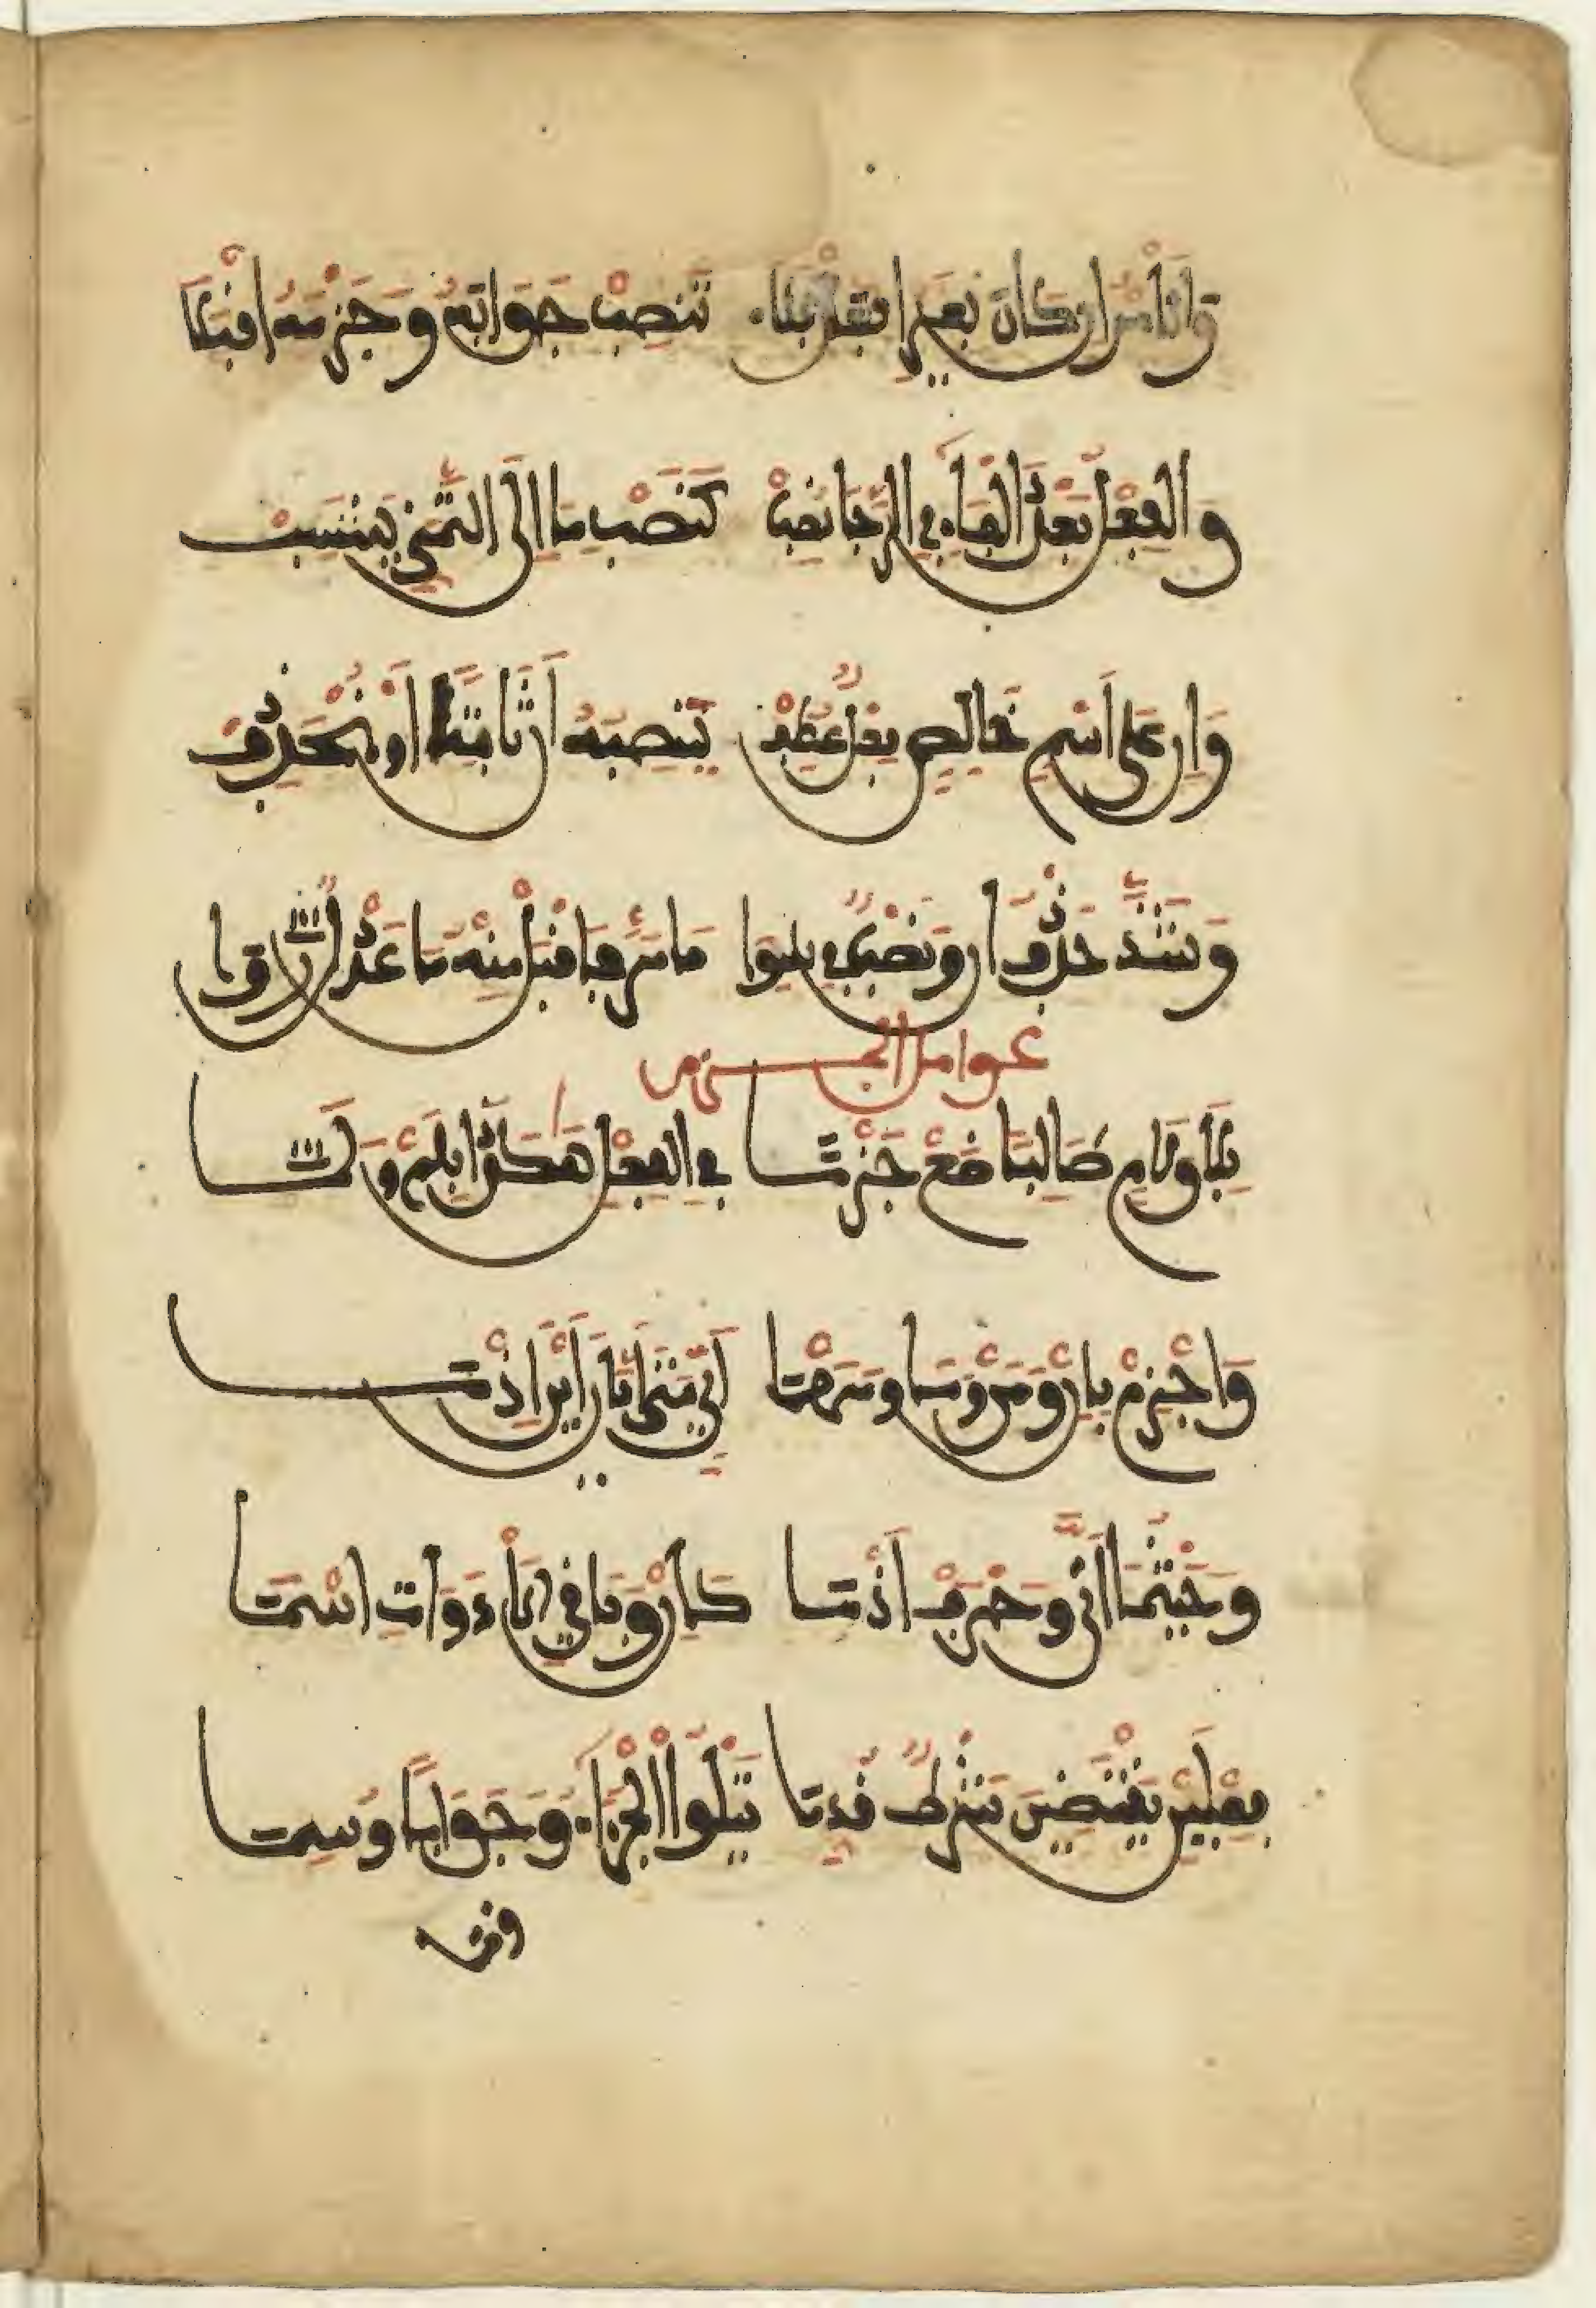 وَالأَمْرُ ان كَانَ بِغَيْرِ افْعَلْ فَلَا تَنْصِبْ جَوَابَهُ وَجَزْمَهُ اقْبَلَا
وَالْفِعْلُ بَعْدَ الْفَاءِ فِي الرَّجَا نُصِبْ كَنَصْبِ مَا إِلَى التَّمَنِّي يَنْتَسِبْ
وَإِن عَلَى اسْمٍ خَالِصٍ فِعْلٌ عُطِفْ تَنْصِبُهُ أَن ثَابِتًا أَوْ مُنْحَذِفْ
وَشَذَّ حَذْفُ أَن وَنَصْبٌ فِي سِوَا مَا مَرَّ فَاقْبَلْ مِنْهُ مَا عَدْلٌ رَوَا
عوامل الجزم
بِلَا وَلَامٍ طَالِبًا ضَعْ جَزْمَا فِي الْفِعْلِ هَكَذَا بِلَمْ وَلَمَّا
وَاجْزِمْ بِإِنْ وَمَنْ وَمَا وَمَهْمَا أَيٍّ مَتَى أَيَّانَ أَيْنَ إِذْمَا
وَحَيْثُمَا أَنَّى وَحَرْفٌ إِذْمَا كَإِنْ وَبَاقِي الْأَدَوَاتِ اسْمَا
فِعْلَيْنِ يَقْتَضِينَ شَرْطٌ قُدِّمَا يَتْلُوا الْجَزَاءُ وَجَوَابًا وُسِمَا